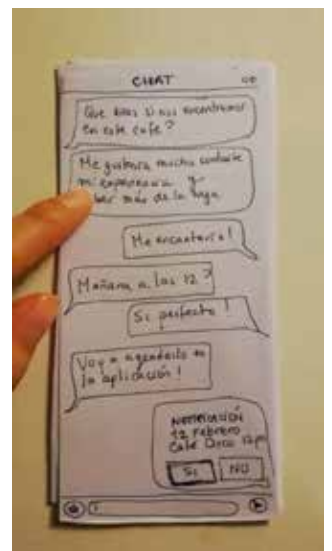 CHAT
Que dices si nos encontramos
en este cafe?
Me gustaria mucho contarte
mi experiencia y
más de la tuya
Me encantaria!
Mañana a las 12?
Si perfecto!
Voy a agendarlo en
la aplicación!
NOTIFICACIÓN
12 Febrero
Café 12pm
SI NO